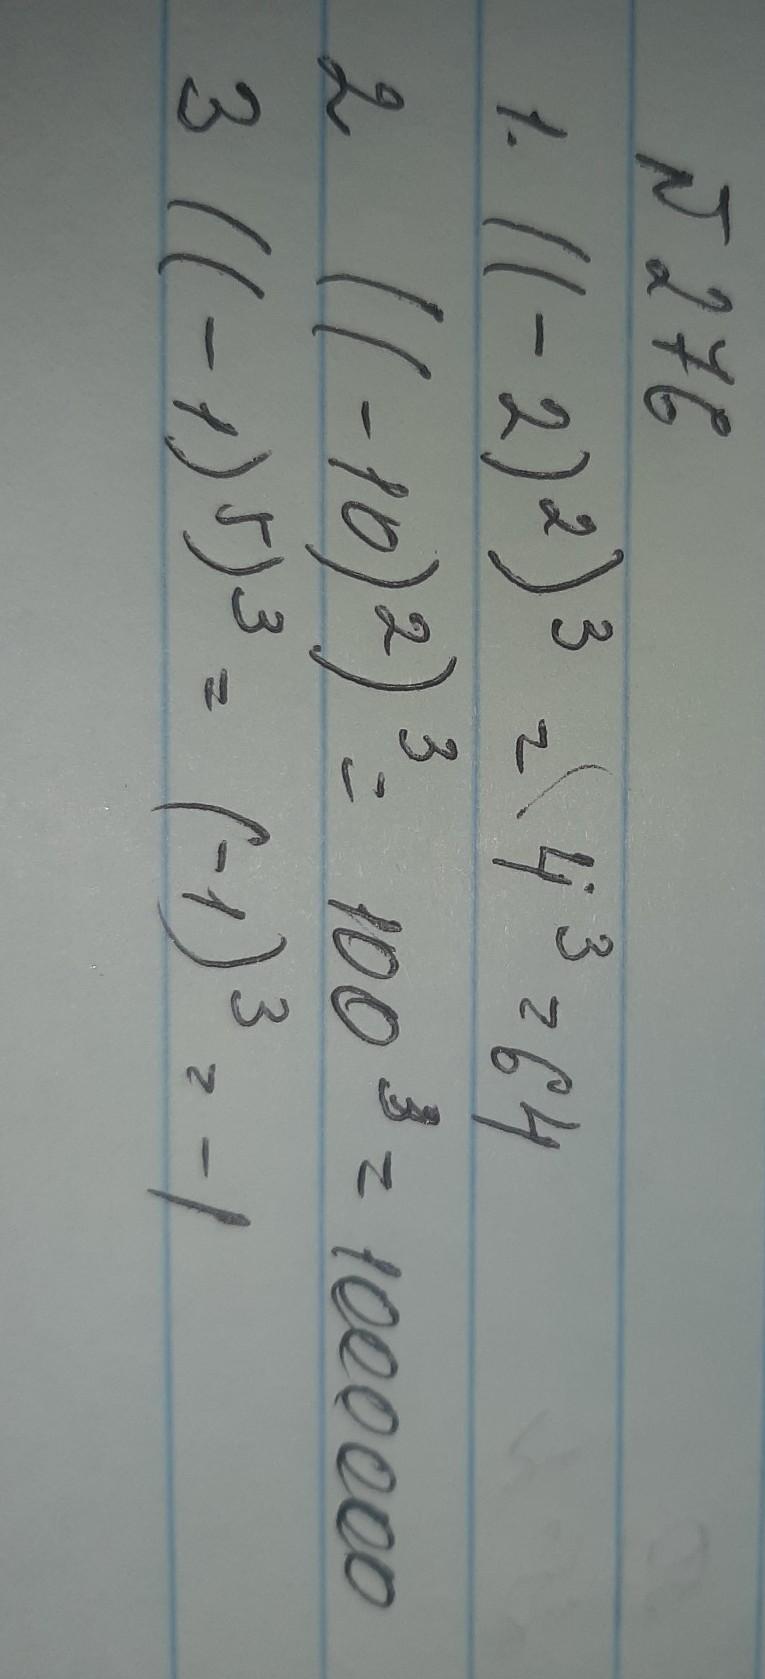 N 276
1. ((-2)²)³ = (4³ = 64
2 ((-10)²)³ = 100³ = 1000000
3 ((-1)⁵)³ = (-1)³ = -1